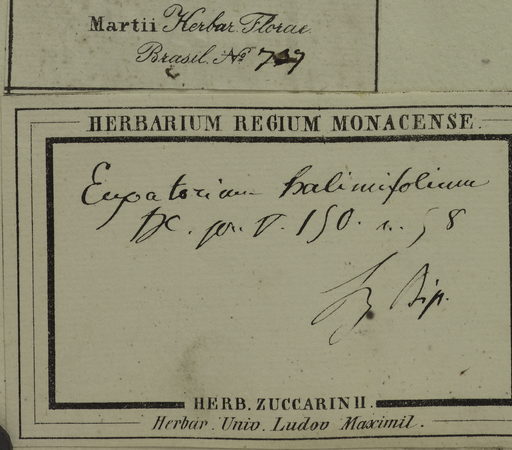 Martii Herbar. Florae
Brasil. Nº
HERBARIUM REGIUM MONACENSE.
Eupatorium halimifolium
DC. pr. V. 150. n. 58
Sz Bip.
HERB. ZUCCARINII.
Herbar. Univ. Ludov Maximil.